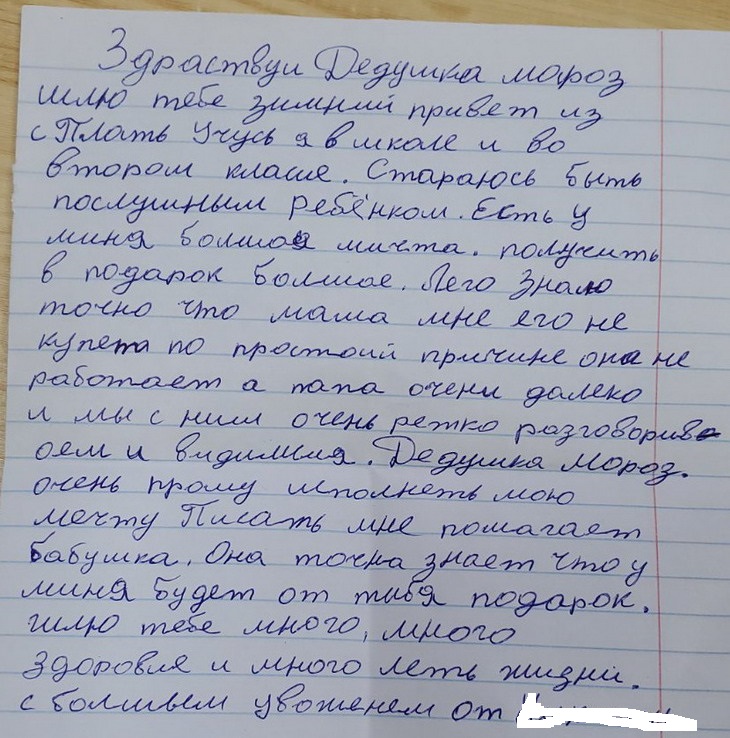 Здраствуи Дедушка мороз
шлю тебе зимний привет из
с Плать Учусь я в школе и во
втором класе. Стараюсь быть
послушным ребёнком. Есть у
миня болшоя мичта. получить
в подарок болшое. Лего Знаю
точно что мама мне его не
купета по простоий причине она не
работает а папа очени далеко
и мы с ним очень ретко разговорива
оем и видимися. Дедушка Мороз.
очень прошу исполнеть мою
мечту Писать мне помагает
бабушка. Она точна знает что у
миня будет от тибя подарок.
шлю тебе много, много
здоровя и много леть жизни.
с болшым уважением от